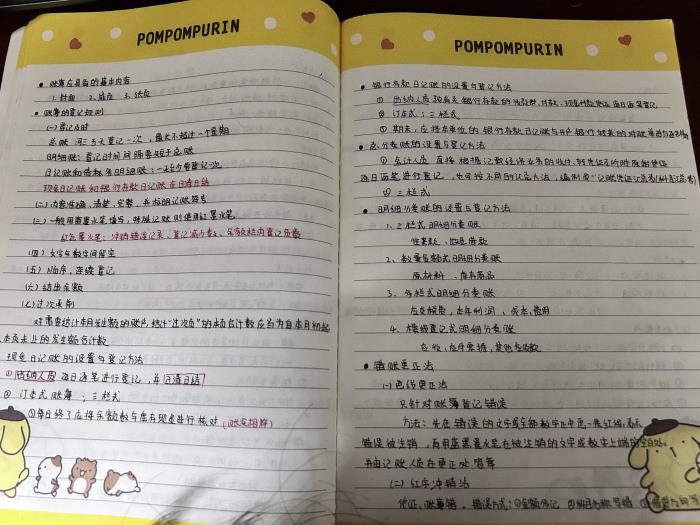 POMPOMPURIN
• 账簿应具备的基本内容
1. 封面 2. 扉页 3. 账页
• 账簿的登记规则
(一)登记及时
总账 河三五天登记一次，最长不超过一个星期
明细账：登记时间间隔要短于总账
日记账和债权债务明细账：一天就要登记一次
现金日记账和银行存款日记账应日清日结
(二)内容准确、清楚、完整，并标明记账符号
(三)一般用蓝黑水笔填写，特殊记账则使用红墨水笔
红色墨水笔：冲销错误记录、登记减少数、余额栏内登记负数
(四)文字与数字间留空
(五)顺序，连续登记
(六)结出余额
(七)过次承前
对需要结计本月发生额的账户，结计"过次页"的本页合计数应当为自本月初起
至本页末止的发生额合计数
现金日记账的设置与登记方法
①出纳人员每日逐笔进行登记，并日清日结
② 订本式账簿；三栏式
③每日终了应将余额数与库存现金进行核对(账实相符)
POMPOMPURIN
• 银行存款日记账的设置与登记方法
① 出纳人员按有关银行存款的收款凭证、付款、现金付款凭证每日逐笔登记
② 订本式；三栏式
③ 期末，应将本单位的银行存款日记账与开户银行转来的对账单进行
• 总分类账的设置与登记方法
① 会计人员 直接根据记数经济业务的收付、转凭证
逐日逐笔进行登记，也可按不同的汇总方法，编制成"记账凭证汇总表(科目汇总表)
② 三栏式
• 明细分类账的设置与登记方法
1. 三栏式明细分类账
2. 数量金额式明细分类账
原材料、库存商品
3. 多栏式明细分类账
应交税费，本年利润、成本、费用
4. 横线登记式明细分类账
应收、应付票据，其他应收款
• 错账更正法
(一)划线更正法
只针对账簿登记错误
方法：先在错误的文字或全部数字正中画一条红线，表示
错误被注销，再用蓝黑墨水笔在被注销的文字或数字上端的空白处
并由记账人员在更正处盖章
(二)红字冲销法
凭证、账簿错。错误方式：①金额多记 ②科目名称写错 ③借贷方向写